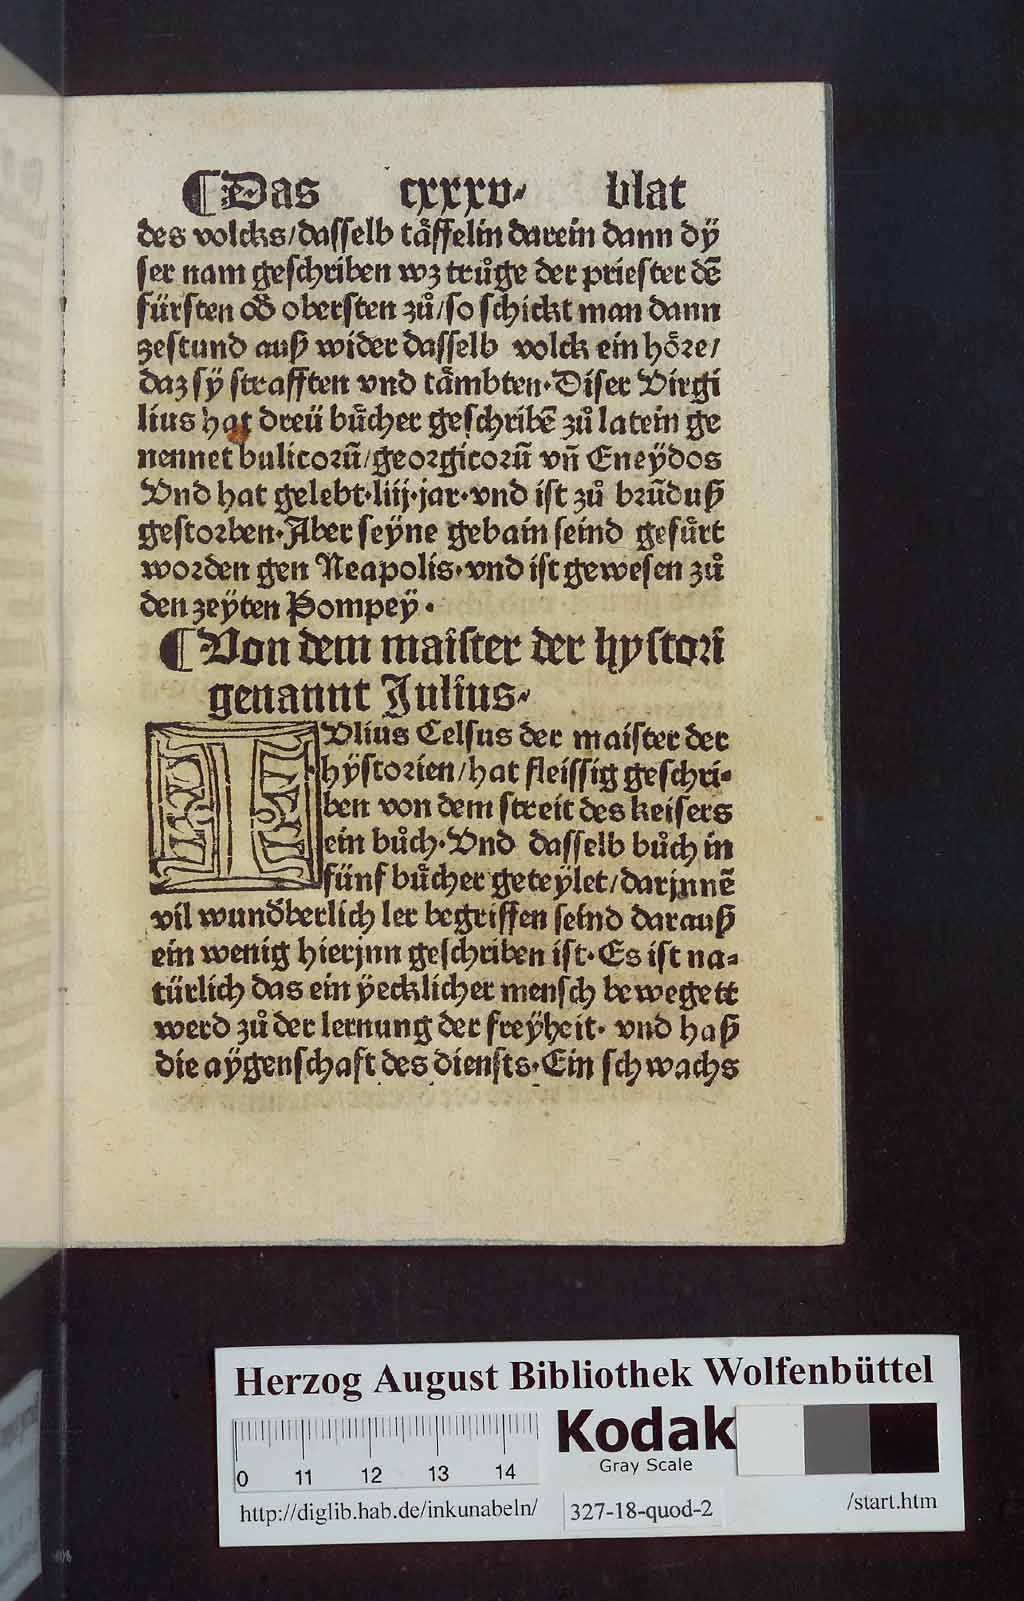 ¶Das cxxxv· blat
des volcks/dasselb tåffelin darein dann dÿ
ser nam geschriben wz trůge der priester dē
fürsten od̄ obersten zů/so schickt man dann
zestund auß wider dasselb volck ein hoͤre/
daz sÿ strafften vnd tåmbten·Diser Virgi
lius hat dreü buͤcher geschribē zů latein ge
nennet bulicorū/georgicorū vn̄ Eneÿdos
Vnd hat gelebt·liij·jar·vnd ist zů brūduß
gestorben·Aber seÿne gebain seind gefuͤrt
worden gen Neapolis·vnd ist gewesen zů
den zeÿten Pompeÿ·
¶Von dem maister der hystori
genannt Julius·
IVlius Celsus der maister der
hÿstorien/hat fleissig geschri-
ben von dem streit des keisers
ein bůch·Vnd dasselb bůch in
fünf buͤcher geteÿlet/darjnnē
vil wund̄berlich ler begriffen seind darauß
ein wenig hierjnn geschriben ist·Es ist na-
türlich das ein ÿecklicher mensch bewegett
werd zů der lernung der freÿheit· vnd haß
die aÿgenschaft des diensts·Ein schwachs
Herzog August Bibliothek Wolfenbüttel
Kodak
Gray Scale
0 11 12 13 14
http://diglib.hab.de/inkunabeln/ 327-18-quod-2 /start.htm